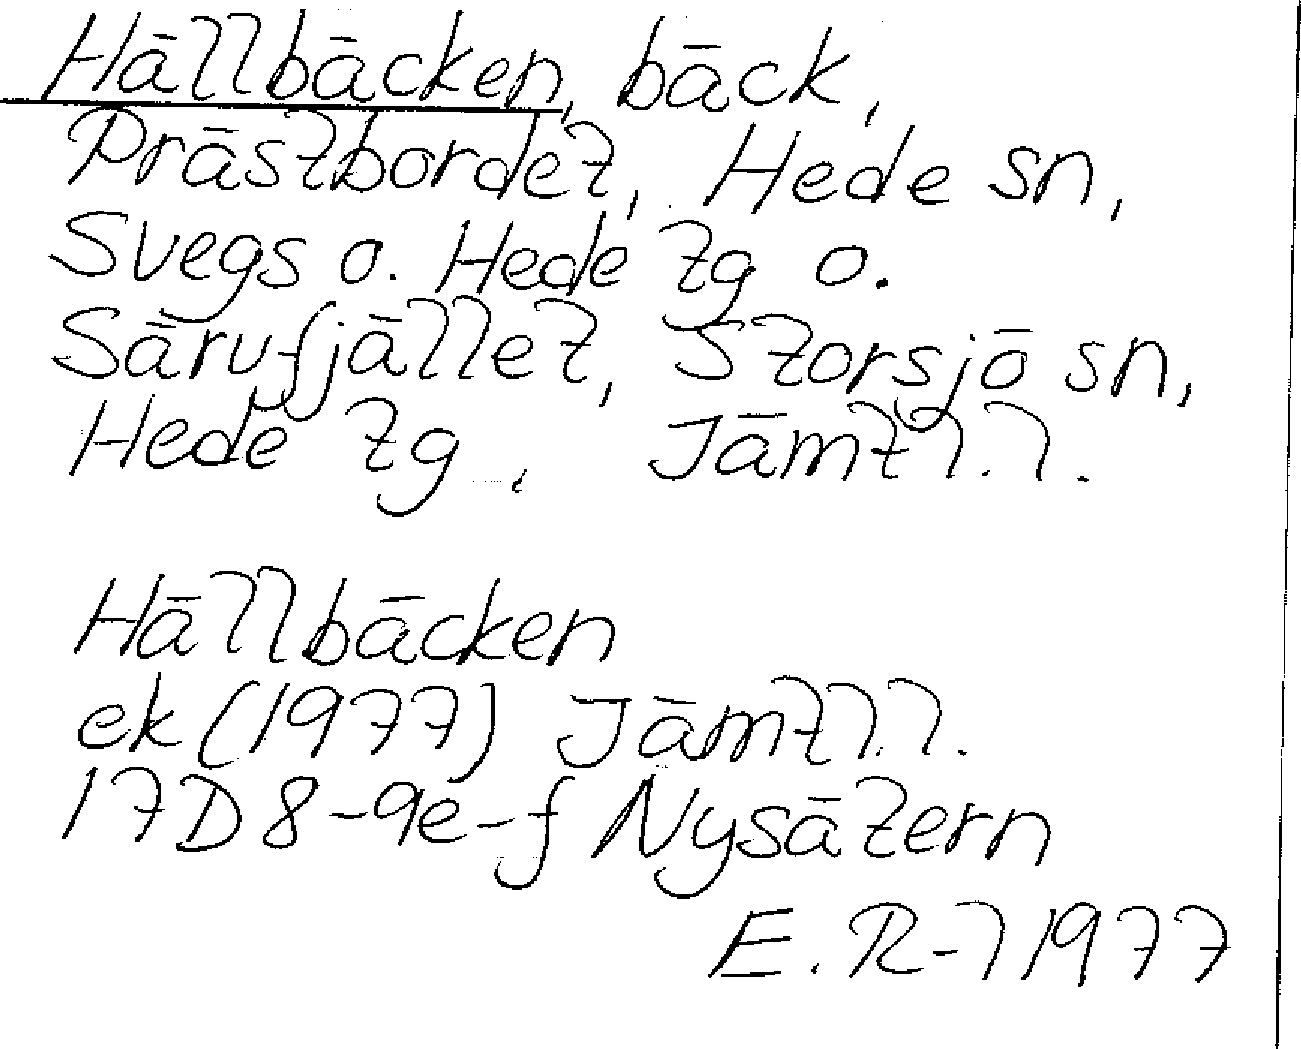 Hällbäcken, bäck,
Prästbordet, Hede sn,
Svegs o. Hede tg o.
Särvfjället, Storsjö sn,
Hede tg, Jämtl.l.
Hällbäcken
ek (1977) Jämtl.l.
17D 8-9e-f Nysätern
E. R-l 1977